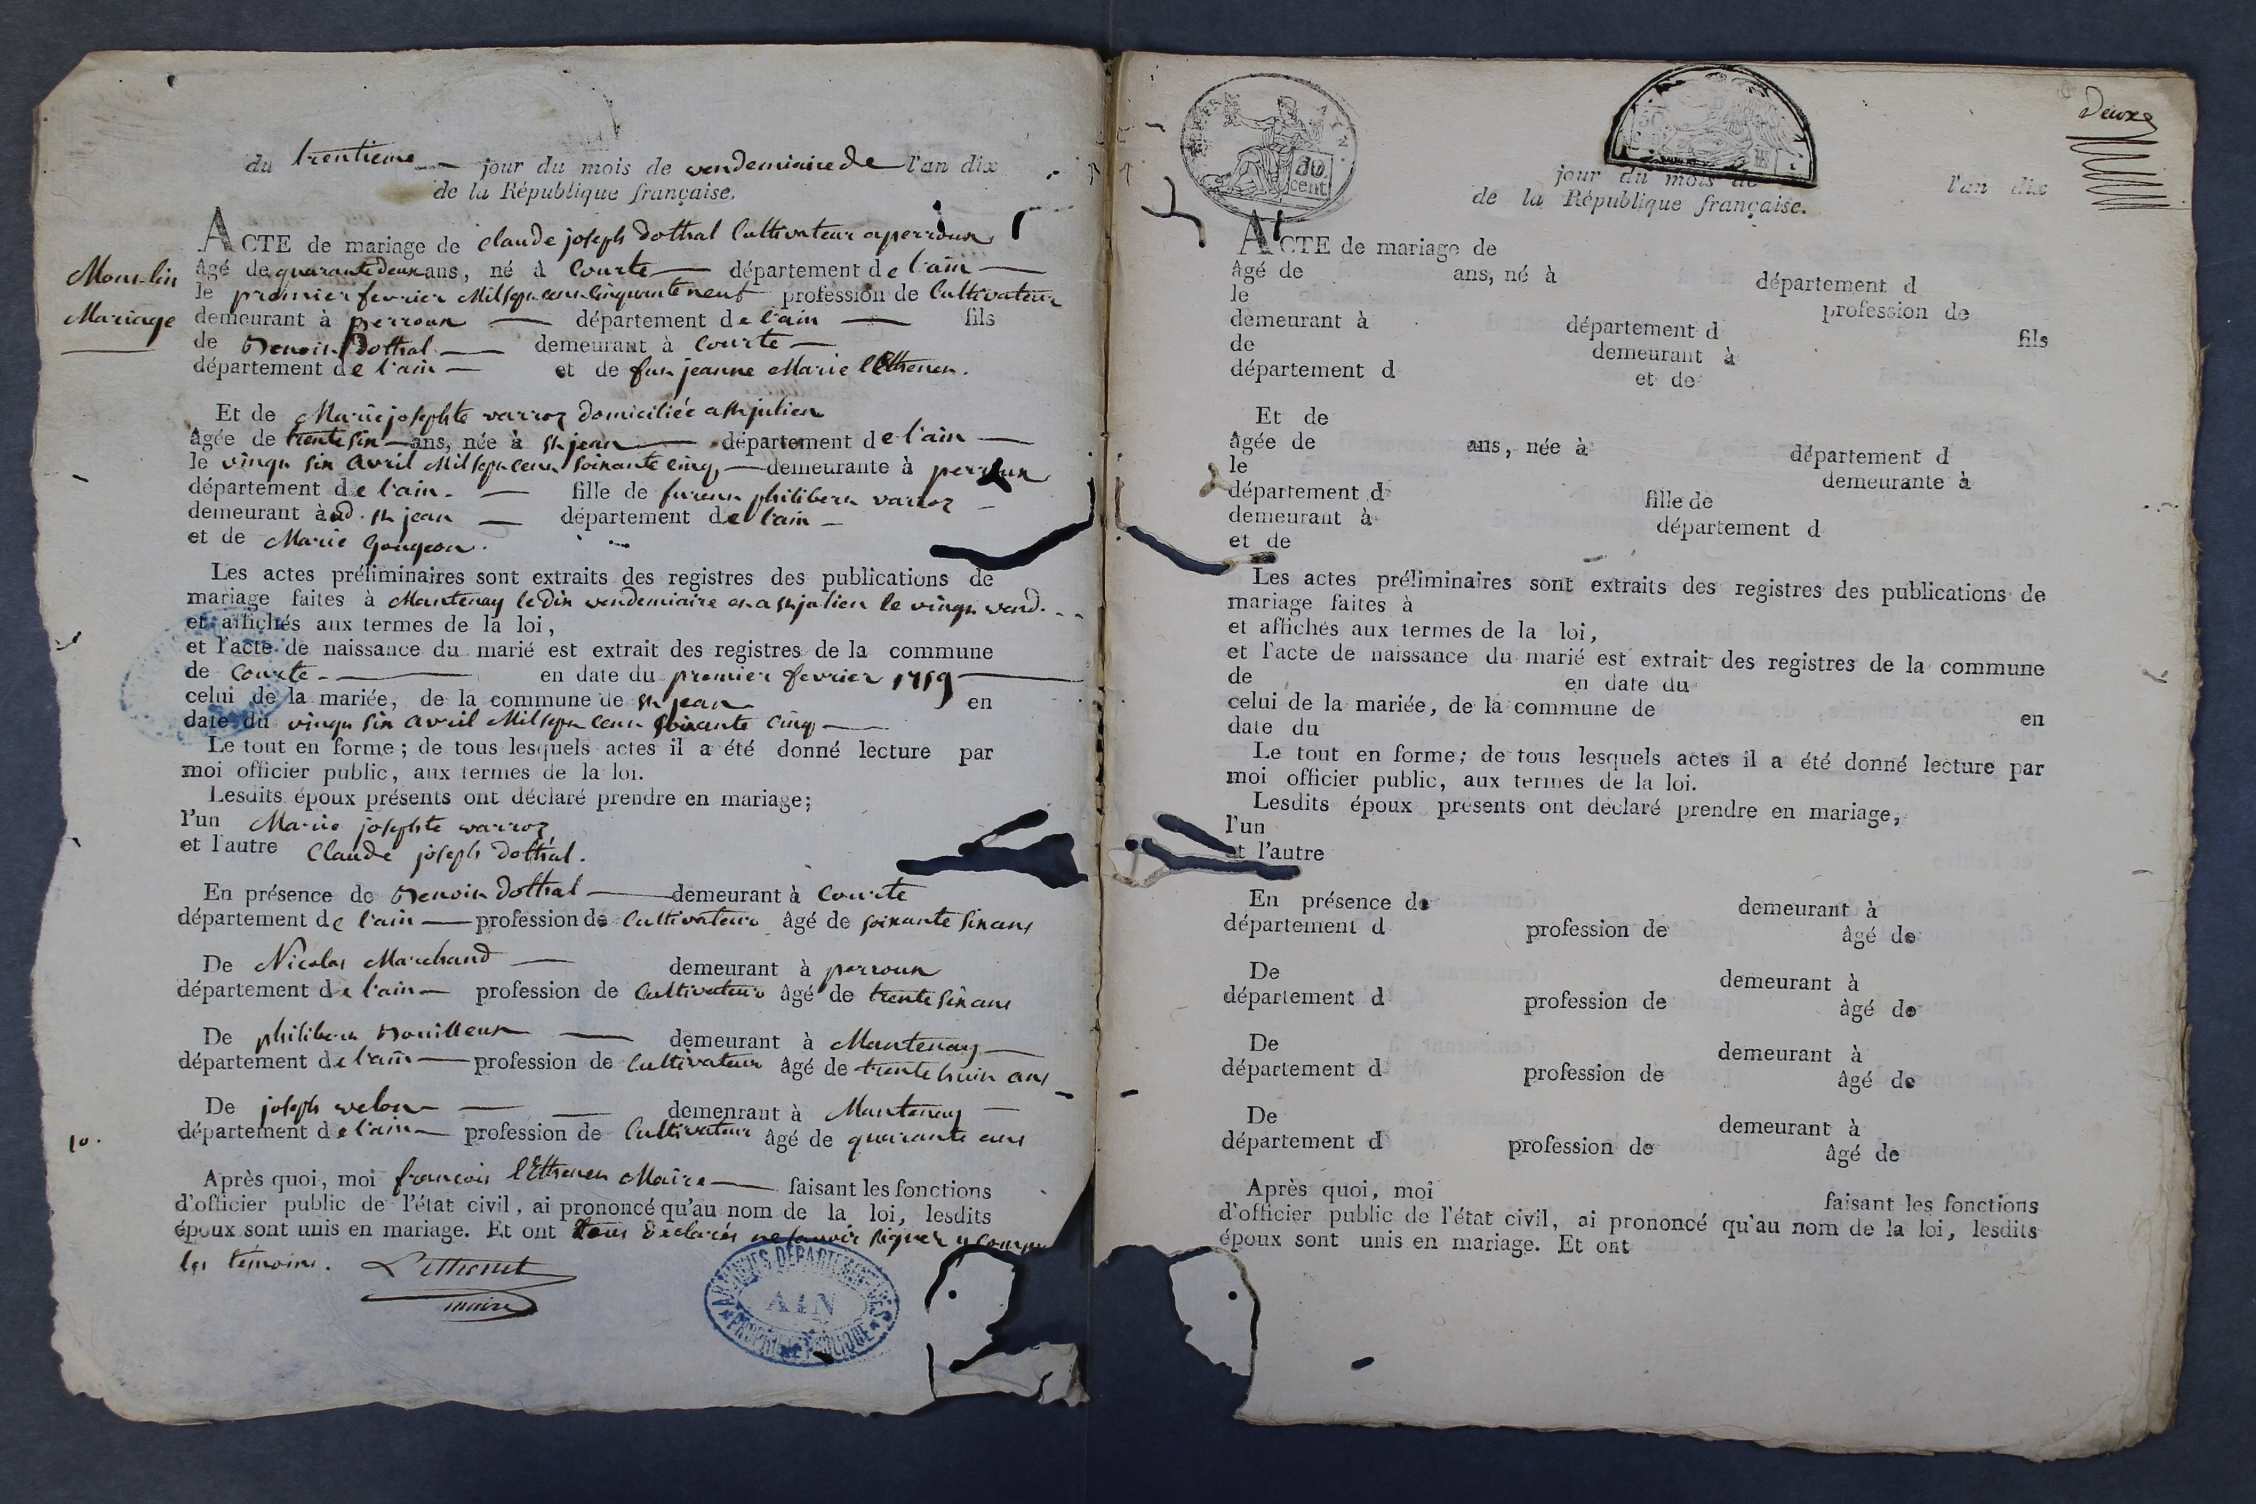 du trentieme jour du mois de vendemiaire de l'an dix
de la République française.
ACTE de mariage de claude joseph dothal Cultivateur a perroux
Mariage
âgé de quarante deux ans, né à Courte département de l'ain
le premier fevrier Mil sept cent cinquante neuf profession de Cultivateur
demeurant à perroux département de l'ain fils
de Benoit dothal demeurant à Courte
département de l'ain et de jeanne Marie lEthenet.
Et de Marie josephte varroz domiciliée a st julien
âgée de trente six ans, née à st jean département de l'ain
le vingt six avril Mil sept cent soixante cinq demeurante à perroux
département de l'ain. fille de philibert varroz
demeurant à st jean département de l'ain
et de Marie Gougeon.
Les actes préliminaires sont extraits des registres des publications de
mariage faites à Mantenay le dix vendemiaire et a st julien le vingt vend.
et affichés aux termes de la loi,
et l'acte de naissance du marié est extrait des registres de la commune
de Courte en date du premier fevrier 1759
celui de la mariée, de la commune de st jean en
date du vingt six avril Mil sept cent soixante cinq
Le tout en forme; de tous lesquels actes il a été donné lecture par
moi officier public, aux termes de la loi.
Lesdits époux présents ont déclaré prendre en mariage;
l'un Marie josephte varroz
et l'autre Claude joseph dothal.
En présence de Benoit dothal demeurant à Courte
département de l'ain profession de Cultivateur âgé de soixante six ans
De Nicolas Marchand demeurant à perroux
département de l'ain profession de Cultivateur âgé de trente six ans
De philibert Bouilleux demeurant à Mantenay
département de l'ain profession de Cultivateur âgé de trente huit ans
De joseph velon demenrant à Mantenay
10.
département de l'ain profession de Cultivateur âgé de quarante ans
Après quoi, moi francois lEthenet Maire faisant les fonctions
d'officier public de l'état civil, ai prononcé qu'au nom de la loi, lesdits
époux sont unis en mariage. Et ont tous declarés ne savoir signer
les temoins. Lethenet
maire
ARCHIVES DÉPARTEMENTALES
AIN
PROPRIÉTÉ PUBLIQUE
Deux
jour du mois de l'an dix
de la République française.
ACTE de mariage de
âgé de ans, né à département d
le profession de
demeurant à département d fils
de demeurant à
département d et de
Et de
âgée de ans, née à département d
le demeurante à
département d fille de
demeurant à département d
et de
Les actes préliminaires sont extraits des registres des publications de
mariage faites à
et affichés aux termes de la loi,
et l'acte de naissance du marié est extrait des registres de la commune
de en date du
celui de la mariée, de la commune de en
date du
Le tout en forme; de tous lesquels actes il a été donné lecture par
moi officier public, aux termes de la loi.
Lesdits époux présents ont déclaré prendre en mariage,
l'un
et l'autre
En présence de demeurant à
département d profession de âgé de
De demeurant à
département d profession de âgé de
De demeurant à
département d profession de âgé de
De demeurant à
département d profession de âgé de
Après quoi, moi faisant les fonctions
d'officier public de l'état civil, ai prononcé qu'au nom de la loi, lesdits
époux sont unis en mariage. Et ont